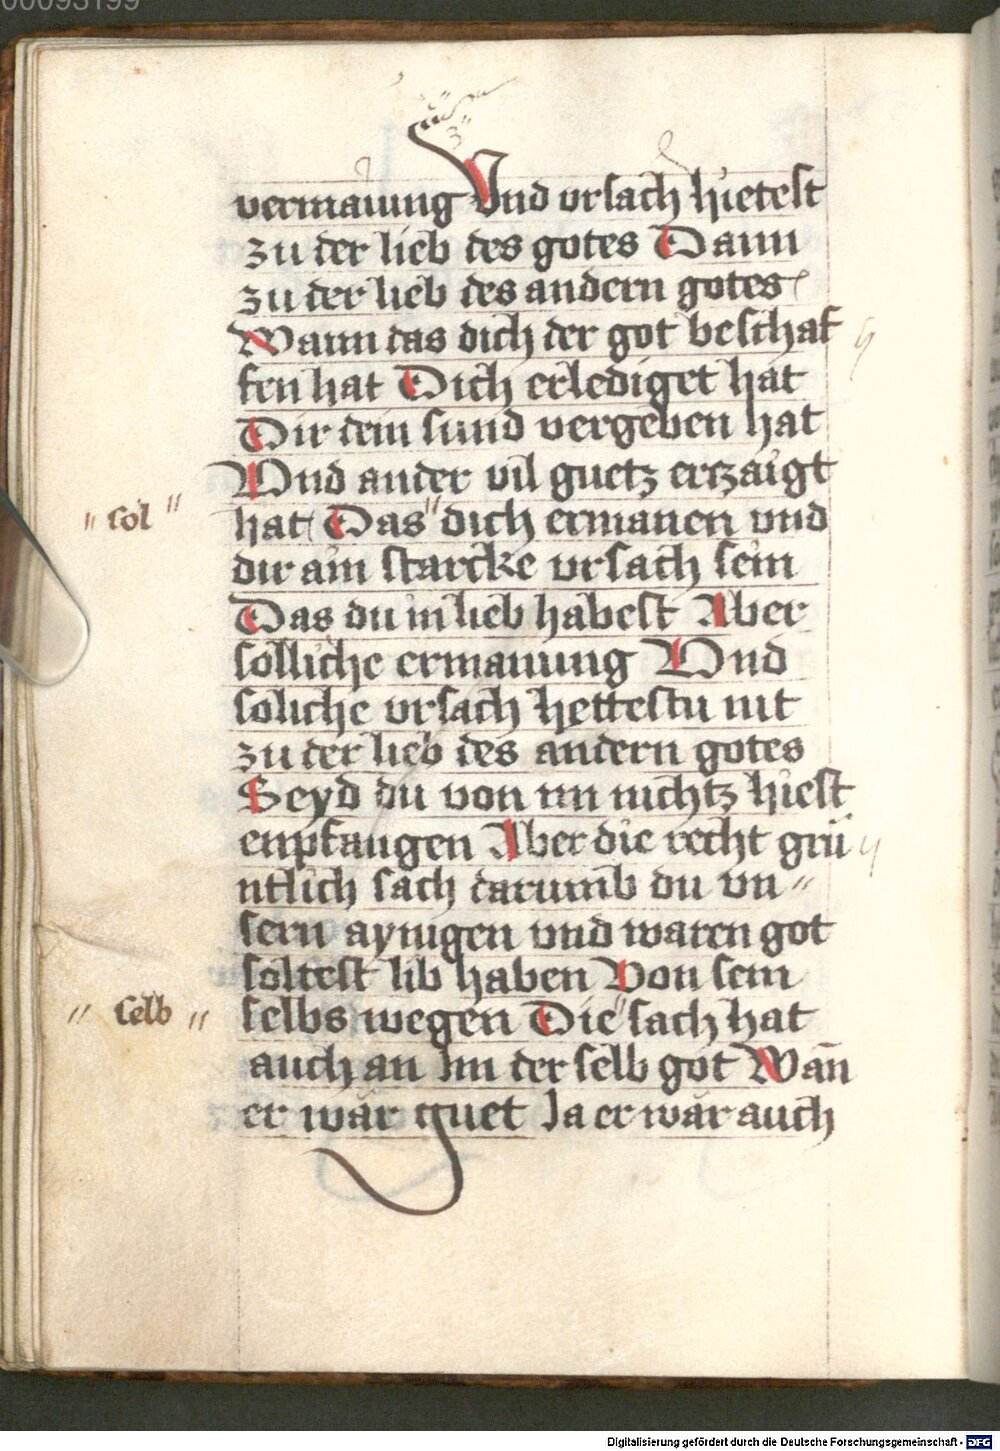 00093199
vermanung Vnd vrsach hietest
zu der lieb des gotes Dann
zu der lieb des andern gotes
Wann das dich der got beschaf
fen hat Dich erlediget hat
Dir dein sund vergeben hat
Vnd ander vil guetz erzaigt
"sol" hat Das" dich ermanen vnd
dir ain starcke vrsach sein
Das du in lieb habest Aber
solliche ermanung Vnd
soliche vrsach hettestu nit
zu der lieb des andern gotes
Seyd du von im nichtz hiest
enpfangen Aber die recht grü
ntlich sach darumb du vn"
sern aynigen vnd waren got
soltest lib haben Von sein
"selb" selbs wegen Die" sach hat
auch an Im der selb got Wañ
er wär guet Ja er wär auch
Digitalisierung gefördert durch die Deutsche Forschungsgemeinschaft - DFG